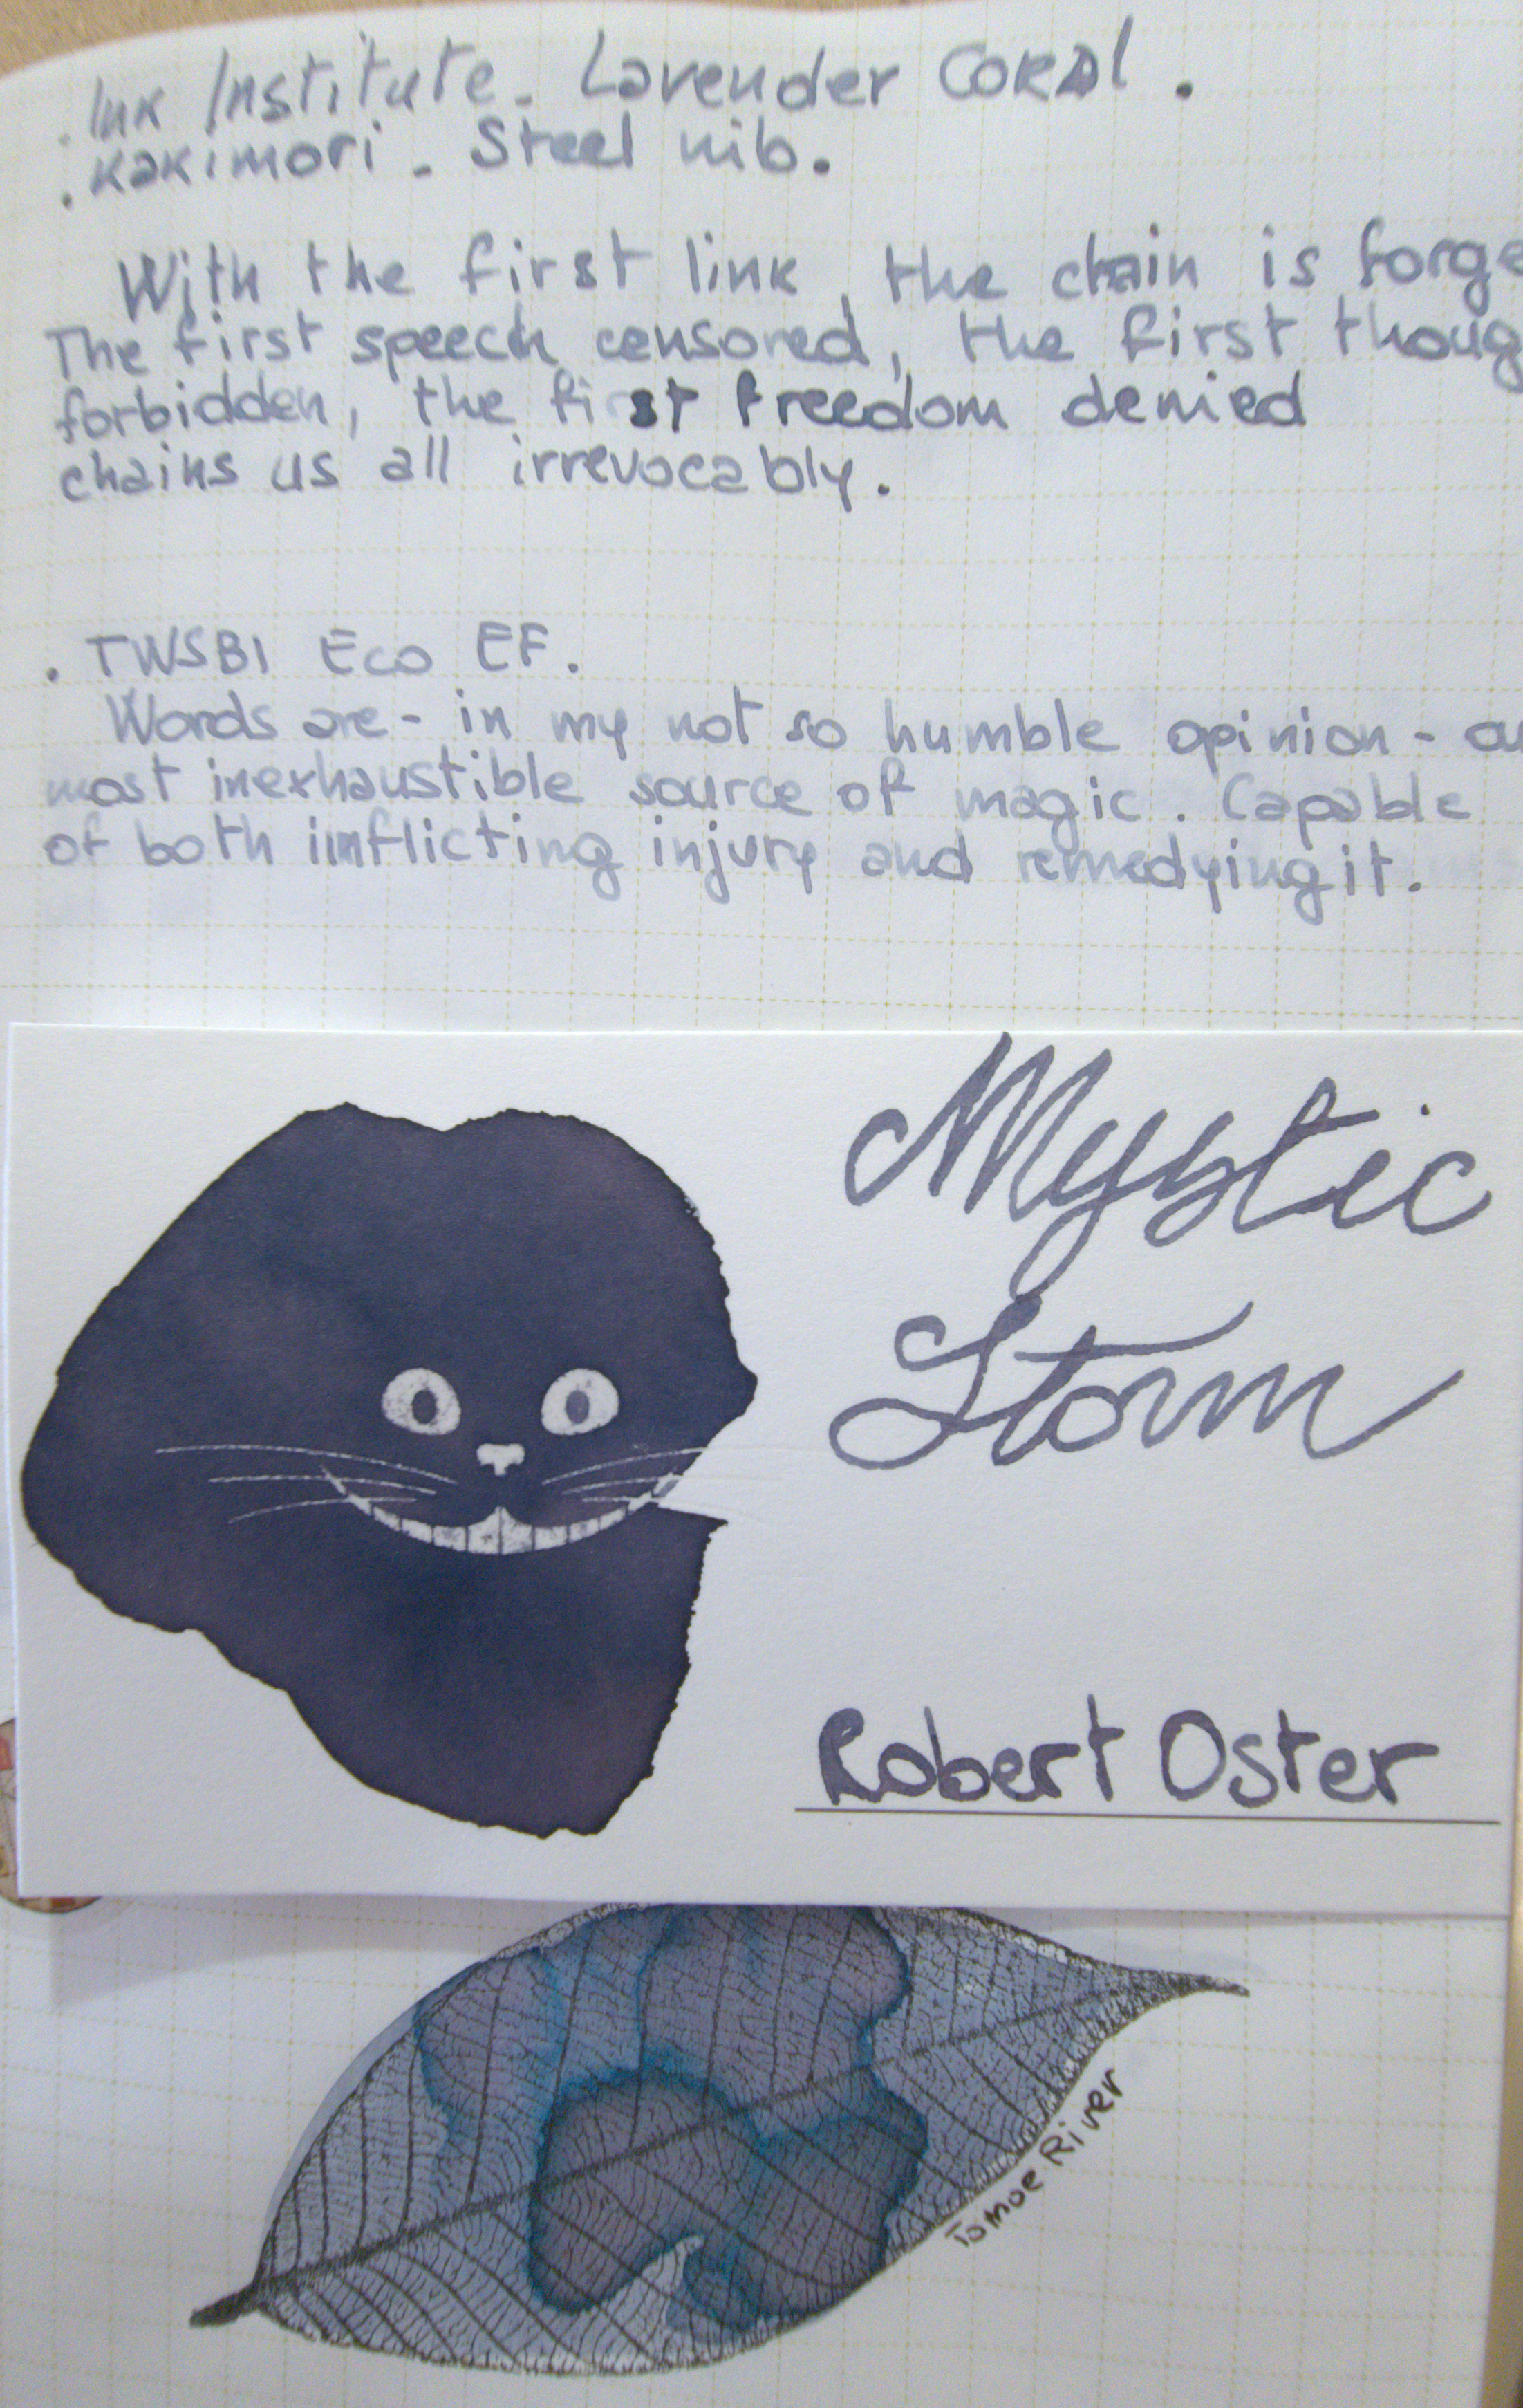 . Ink Institute. Lavender Coral.
. Kakimori. Steel nib.
With the first link, the chain is forge
The first speech censored, the first thoug
forbidden, the first freedom denied
chains us all irrevocably.
. TWSBI Eco EF.
Words are - in my not so humble opinion - ou
most inexhaustible source of magic. Capable
of both imflicting injury and remedying it.
Mystic
Storm
Robert Oster
Tomoe River